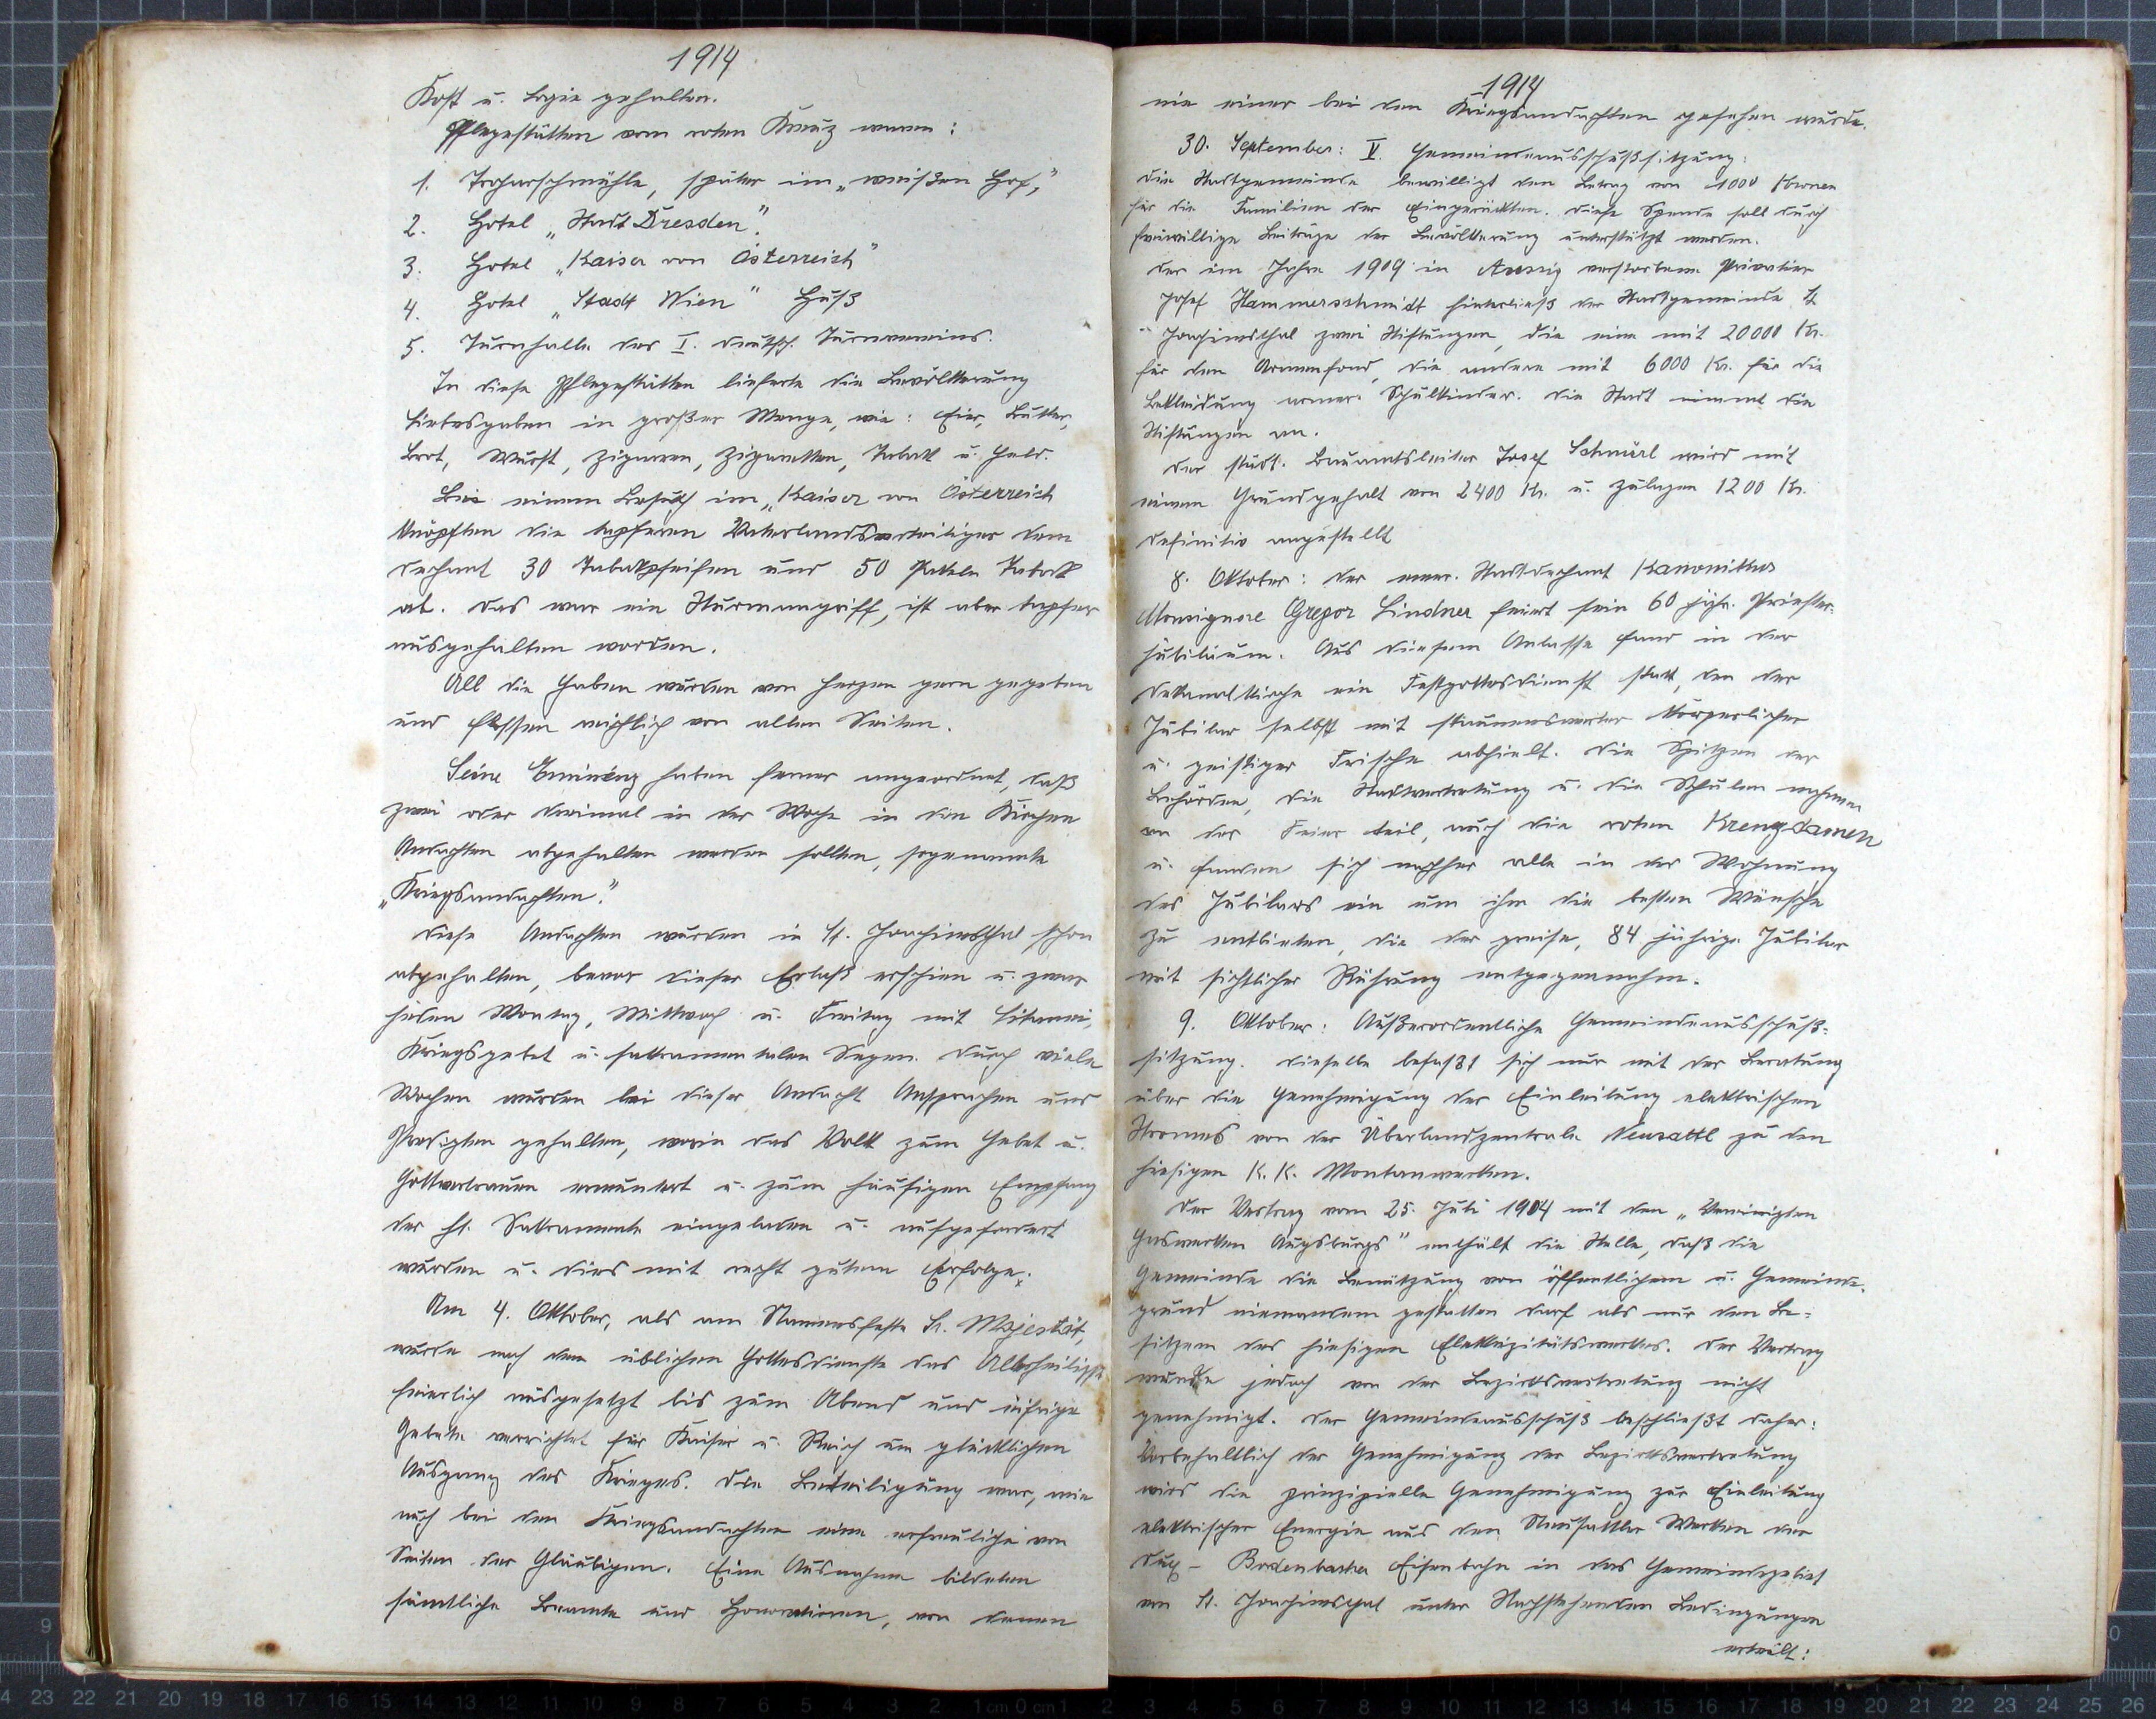 1914
Kost u. Logie gehalten.
Pflegestätten vom roten Kreuz waren:
1. Trocharschmühle, später im „weißen Hof,"
2. Hotel „Stadt Dresden".
3. Hotel „Kaiser von Österreich"
4. Hotel „Stadt Wien" Huß
5. Turnhalle des I. deutsch. Turnvereins.
In diese Pflegestätten lieferte die Bevölkerung
Liebesgaben in großer Menge, wie: Eier, Butter,
Brot, Wurst, Zigarren, Zigaretten, Tabak u. Geld.
Bei einem Besuch im „Kaiser von Österreich
knöpften die tapferen Vaterlandsverteitiger dem
Dechant 30 Tabakpfeifen und 50 Pakeln Tabak
ab. Das war ein Sturmangriff, ist aber tapfer
ausgehalten worden.
All die Gaben wurden von Herzen gern gegeben
und flossen reichlich von allen Seiten.
Seine Eminenz haben ferner angeordnet, daß
zwei oder dreimal in der Woche in den Kirchen
Andachten abgehalten werden sollten, sogenannte
„Kriegsandachten".
Diese Andachten wurden in St. Joachimsthal schon
abgehalten, bevor dieser Erlaß erschien u. zwar
jeden Montag, Mittwoch u. Freitag mit Litanei,
Kriegsgebet u. sakramentalen Segen. Durch viele
Wochen wurden bei dieser Andacht Ansprachen und
Predigten gehalten, worin das Volk zum Gebet u.
Gottvertrauen ermuntert u. zum häufigen Empfang
der hl. Sakramente eingeladen u. aufgefordert
wurden u. dies mit recht gutem Erfolge.
Am 4. Oktober, als am Namensfeste Sr. Majestät,
wurde nach dem üblichen Gottesdienste das Allerheiligste
feierlich ausgesetzt bis zum Abend und eifrige
Gebete verrichtet für Kaiser u. Reich um glücklichen
Ausgang des Krieges. Die Beteiligung war, wie
auch bei den Kriegsandachten eine erfreuliche von
Seiten der Gläubigen. Eine Ausnahme bildeten
sämtliche Beamte und Honorationen, von denen
1914
nie einer bei den Kriegsandachten gesehen wurde.
30. September: V. Gemeindeausschußsitzung:
Die Stadtgemeinde bewilligt den Betrag von 1000 Kronen
für die Familien der Eingerückten. Diese Spende soll durch
freiwillige Beiträge der Bevölkerung unterstützt werden.
Der im Jahre 1909 in Aussig verstorbene Privatier
Josef Hammerschmidt hinterließ der Stadtgemeinde St.
Joachimsthal zwei Stiftungen, die eine mit 20000 Kr.
für den Armenfond, die andere mit 6000 Kr. für die
Bekleidung armer Schulkinder. Die Stadt nimmt die
Stiftungen an.
Der städt. Bauamtsleiter Josef Schmierl wird mit
einem Grundgehalt von 2400 Kr. u. Zulagen 1200 Kr.
definitiv angestellt
8. Oktober: Der emer. Stadtdechant Kanonikus
Monsignore Gregor Lindner feiert sein 60 jähr. Priester-
jubiläum. Aus diesem Anlasse fand in der
Dekanalkirche ein Festgottesdienst statt, den der
Jubilar selbst mit staunenswerter körperlicher
u. geistiger Frische abhielt. Die Spitzen der
Behörden, die Stadtvertretung u. die Schulen nahmen
an der Feier teil, auch die roten Kreuzdamen
u. fanden sich nachher alle in der Wohnung
des Jubilars ein um ihm die besten Wünsche
zu entbieten, die der greise, 84 jährige Jubilar
mit sichtlicher Rührung entgegennahm.
9. Oktober: Außerordentliche Gemeindeausschuß-
sitzung. Dieselbe befaßt sich nur mit der Beratung
über die Genehmigung der Einleitung elektrischen
Stromes von der Überlandzentrale Neusattl zu den
hiesigen K. K. Montanwerken.
Der Vertrag vom 25. Juli 1904 mit den „Vereinigten
Gaswerken Augsburgs" enthält die Stelle, daß die
Gemeinde die Benützung von öffentlichem u. Gemeinde-
grund niemandem gestatten darf als nur den Be-
sitzern des hiesigen Elektrizitätswerkes. Der Vertrag
wurde jedoch von der Bezirksvertretung nicht
genehmigt. Der Gemeindeausschuß beschließt daher:
Vorbehaltlich der Genehmigung der Bezirksvertretung
wird die prinzipielle Genehmigung zur Einleitung
elektrischer Energie aus den Neusattler Werken der
Dux-Bodenbacher Eisenbahn in das Gemeindegebiet
von St. Joachimsthal unter Nachstehenden Bedingungen
erteilt: